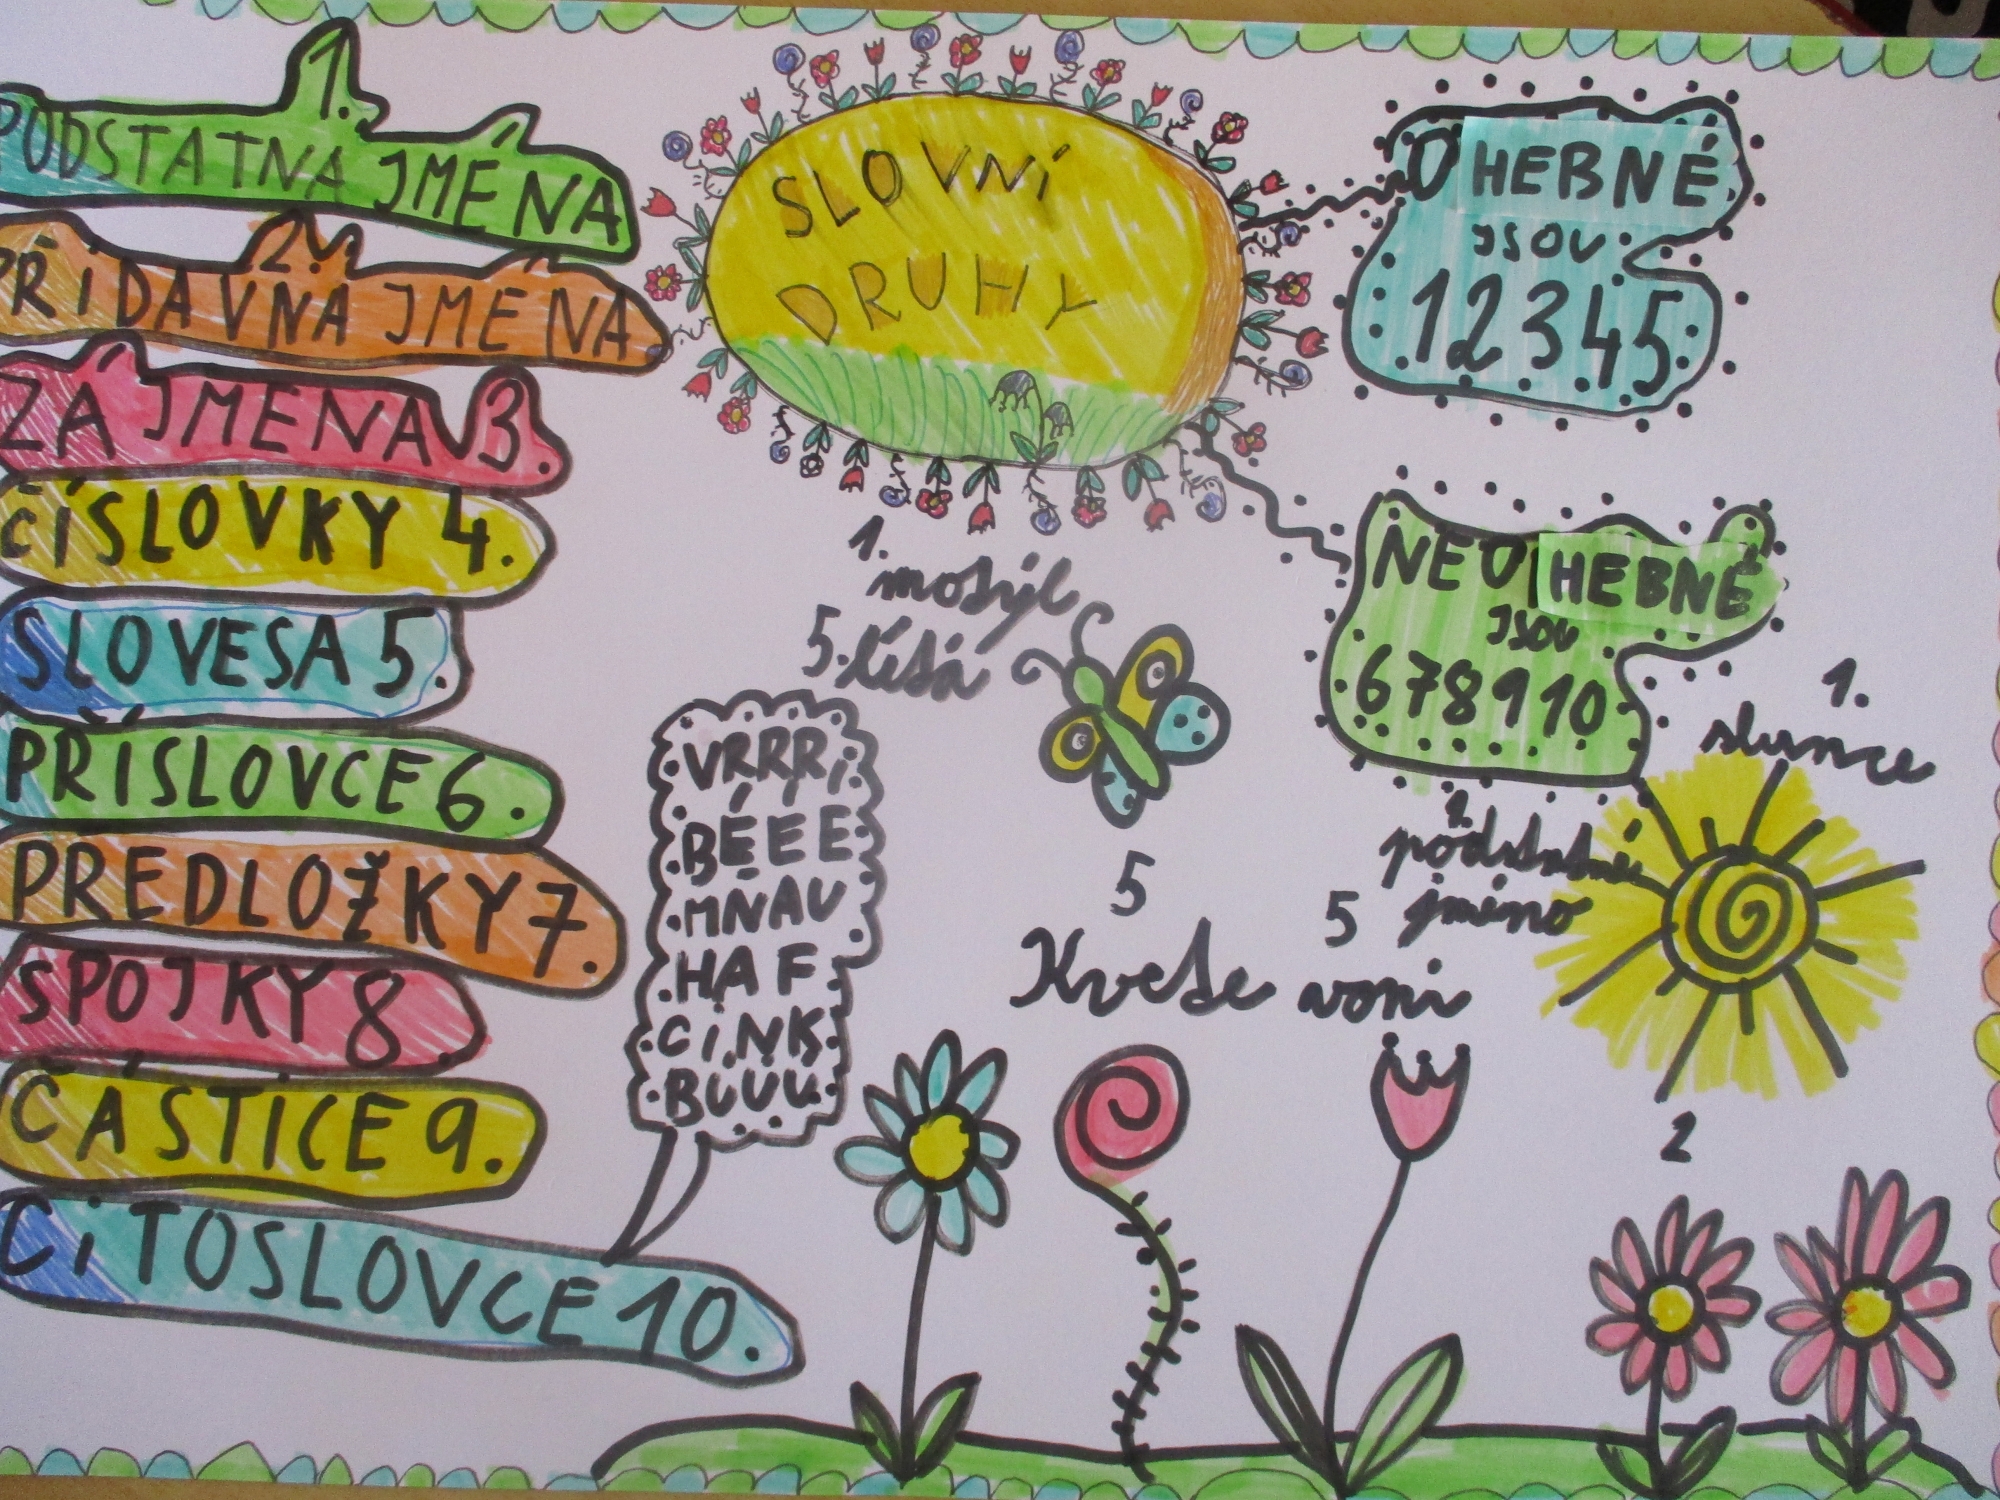 1.
PODSTATNÁ JMÉNA
2.
PŘÍDAVNÁ JMÉNA
ZÁJMENA 3.
ČÍSLOVKY 4.
SLOVESA 5.
PŘÍSLOVCE 6.
PŘEDLOŽKY 7.
SPOJKY 8.
ČÁSTICE 9.
CITOSLOVCE 10.
SLOVNÍ
DRUHY
OHEBNÉ
JSOU
12345
NEOHEBNÉ
JSOU
678910
1.
motýl
5. létá
VRRR,
BÉÉÉ
MŇAU
HAF
CINK
BUUU
5
Kvete
5
voní
1.
slunce
podstatné
jméno
2